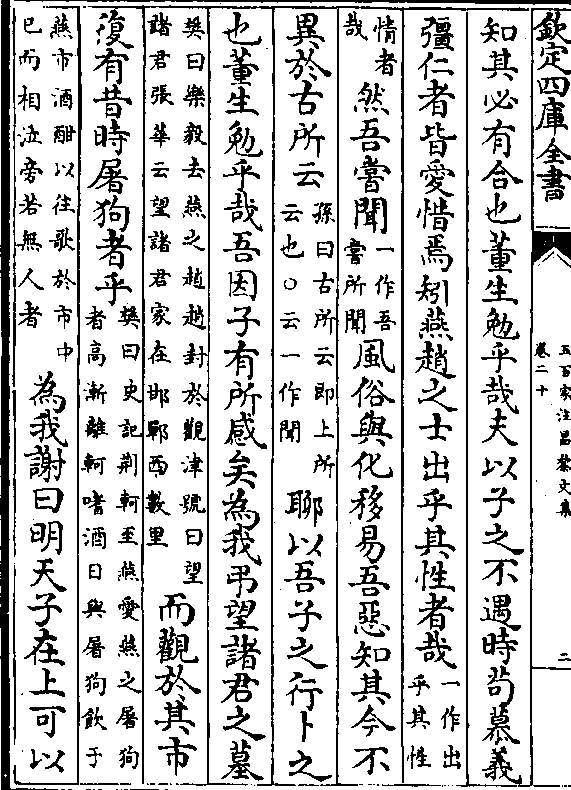 欽定四庫全書
五百家注昌黎文集
卷二十
二
知其必有合也董生勉乎哉夫以子之不遇時茍慕義
彊仁者皆愛惜焉矧燕趙之士出乎其性者哉一作出乎其性
情者哉然吾嘗聞一作吾嘗所聞風俗與化移易吾惡知其今不
異於古所云孫曰古所云即上所云也○云一作聞聊以吾子之行卜之
也董生勉乎哉吾因子有所感矣為我弔望諸君之墓
樊曰樂毅去燕之趙趙封於觀津號曰望諸君張華云望諸君冢在邯鄲西數里而觀於其市
復有昔時屠狗者乎樊曰史記荆軻至燕愛燕之屠狗者高漸離軻嗜酒日與屠狗飲于
燕市酒酣以往歌於市中已而相泣旁若無人者為我謝曰明天子在上可以